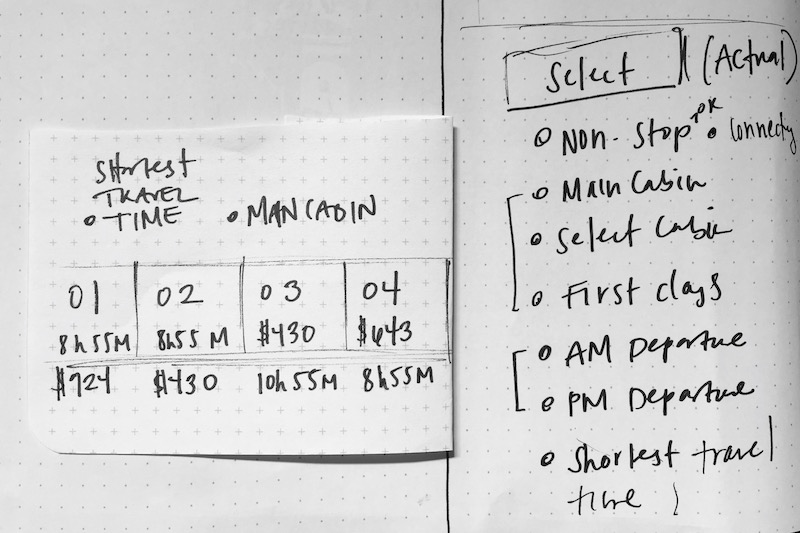 Shortest
TRAVEL
• TIME
• MAN CABIN
01 02 03 04
8h55M 8h55M $430 $643
$724 $430 10h55M 8h55M
Select (Actual)
• Non-Stop • Connecty
• Main Cabin
• Select Cabin
• First Class
• AM Departure
• PM Departure
• Shortest travel
time